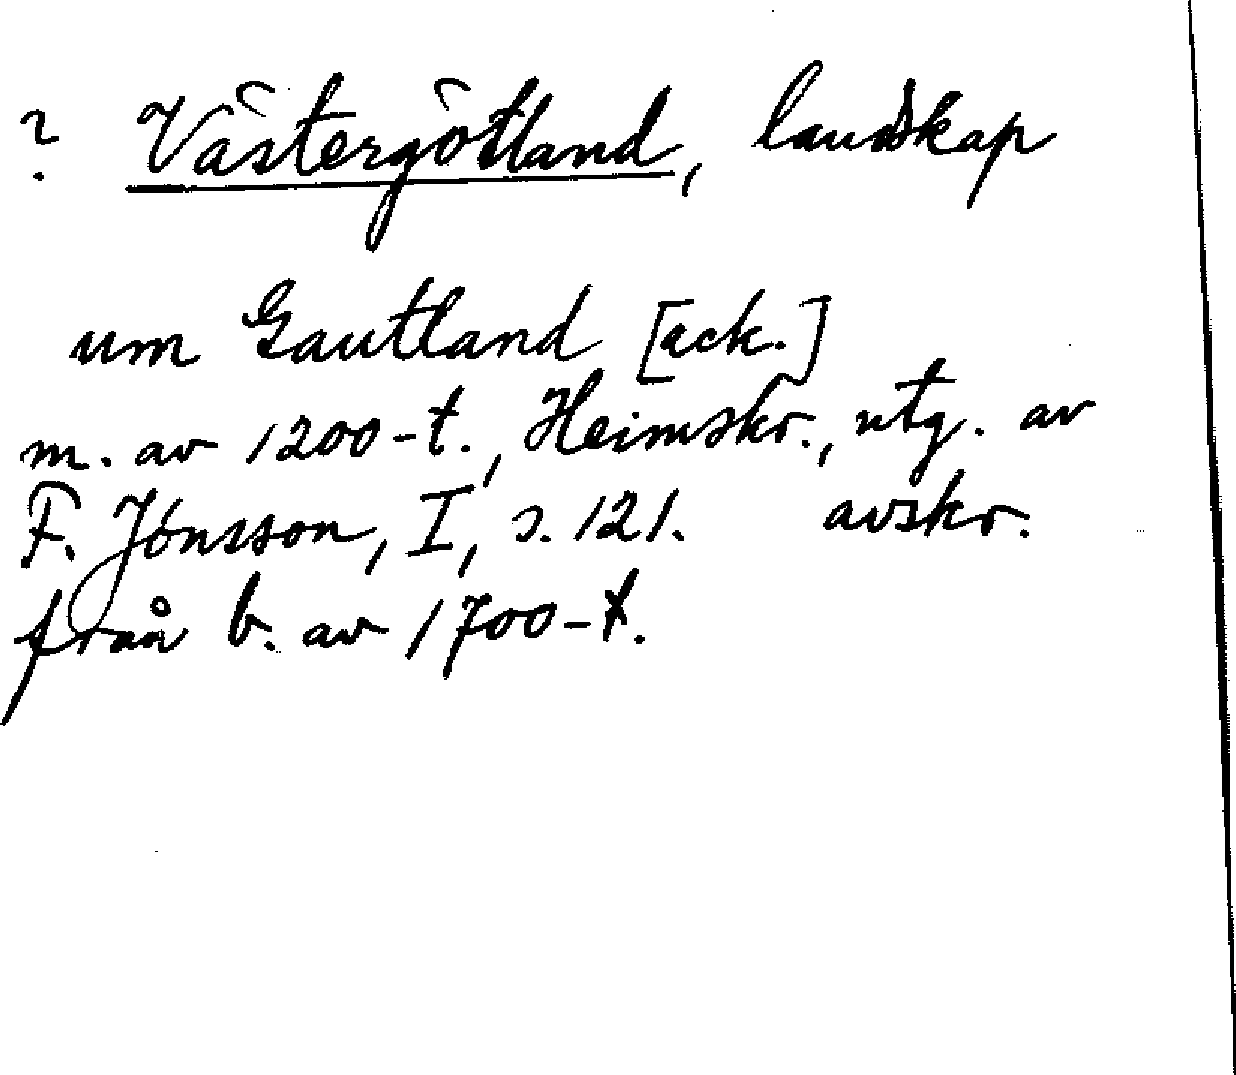 ? Västergötland, landskap
um Gautland [ack.]
m. av 1200-t., Heimskr., utg. av
F. Jónsson, I, s. 121. avskr.
från b. av 1700-t.